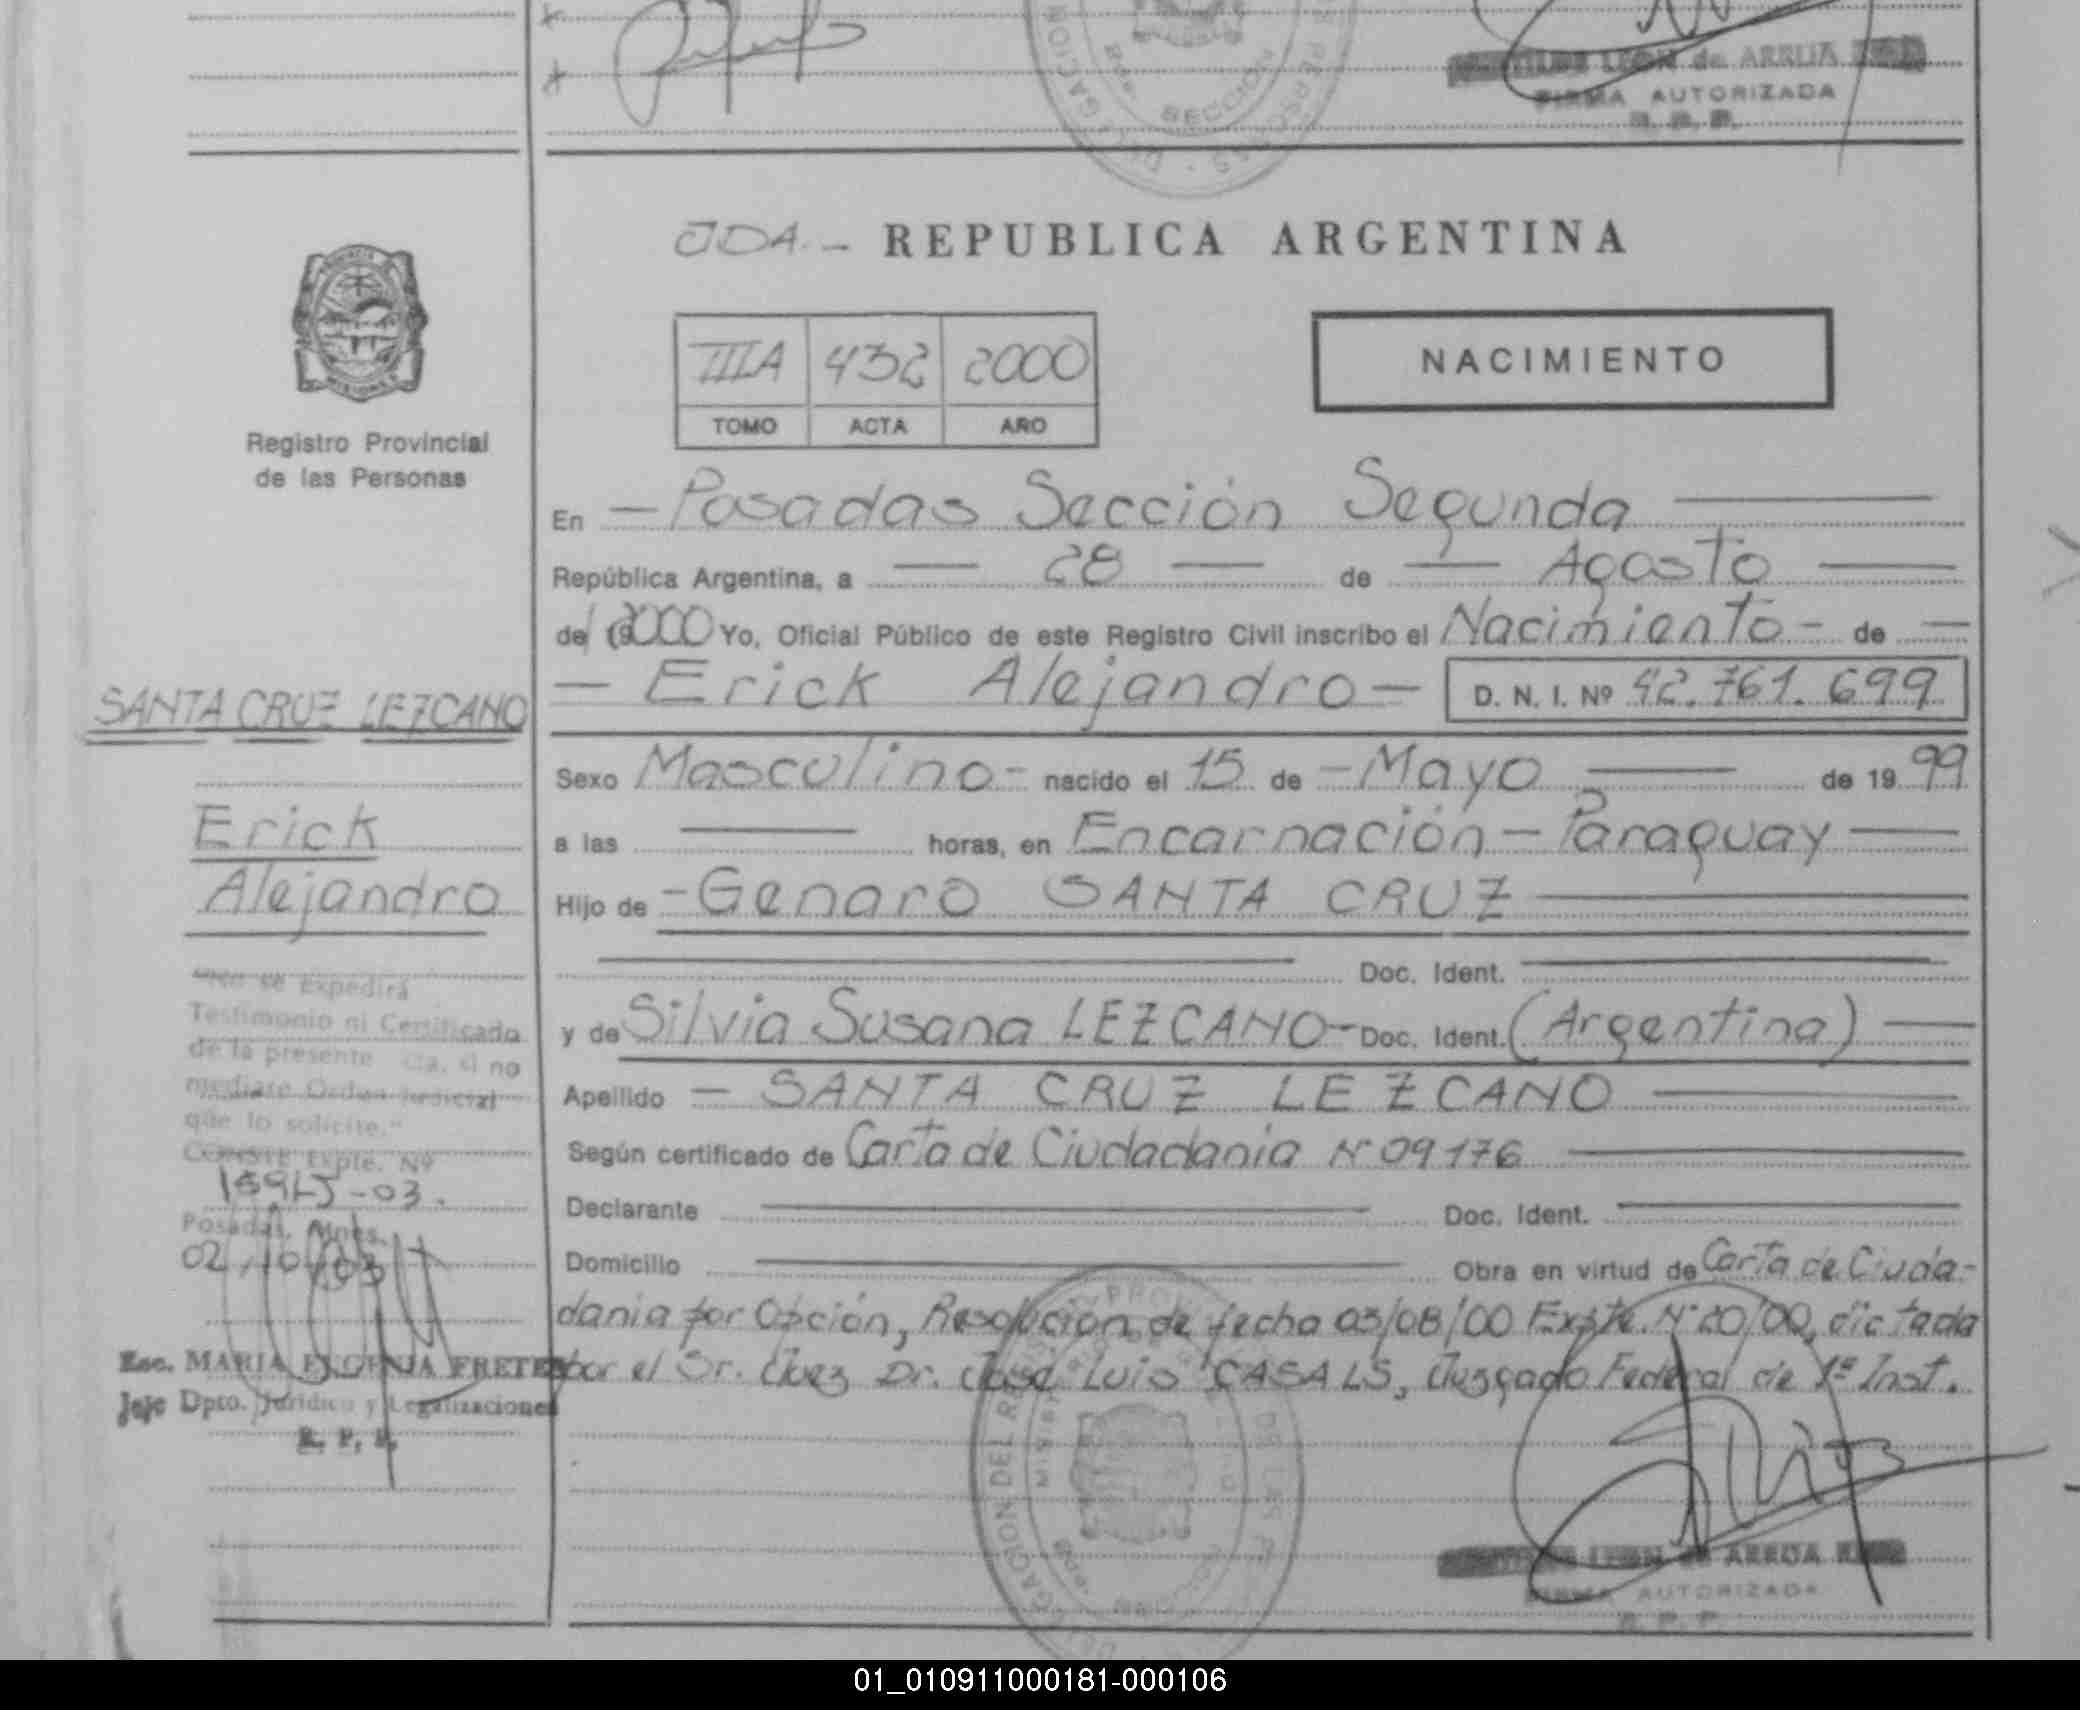 LEON de ARRUA
FIRMA AUTORIZADA
R. P. P.
SECCION
JDA. - REPUBLICA ARGENTINA
IIIA 432 2000
TOMO ACTA AÑO
NACIMIENTO
Registro Provincial
de las Personas
En - Posadas Sección Segunda
República Argentina, a - 28 - de - Agosto
de 2000 Yo, Oficial Público de este Registro Civil inscribo el Nacimiento - de -
- Erick Alejandro - D. N. I. Nº 42.761.699
SANTA CRUZ LEZCANO
Erick
Alejandro
Sexo Masculino - nacido el 15 de - Mayo de 19 99
a las horas, en Encarnación - Paraguay
Hijo de - Genaro SANTA CRUZ
Doc. Ident.
y de Silvia Susana LEZCANO - Doc. Ident. (Argentina)
Apellido - SANTA CRUZ LEZCANO
Según certificado de Carta de Ciudadania Nº 09176
Declarante Doc. Ident.
Domicilio Obra en virtud de Carta de Ciuda-
dania por Opción, Resolucion de fecha 03/08/00 Expte. Nº 20/00, dictada
por el Sr. Juez Dr. Jose Luis CASALS, Juzgado Federal de 1ª Inst.
"No se Expedirá
Testimonio ni Certificado
de la presente si no
mediare Orden Judicial
que lo solicite."
CONSTE Expte. Nº
Posadas, Mnes.
02/10/03
Esc. MARIA EUGENIA FRETES
Jefe Dpto. Jurídico y Legalizaciones
R. P. P.
LEON de ARRUA
FIRMA AUTORIZADA
R. P. P.
01_010911000181-000106